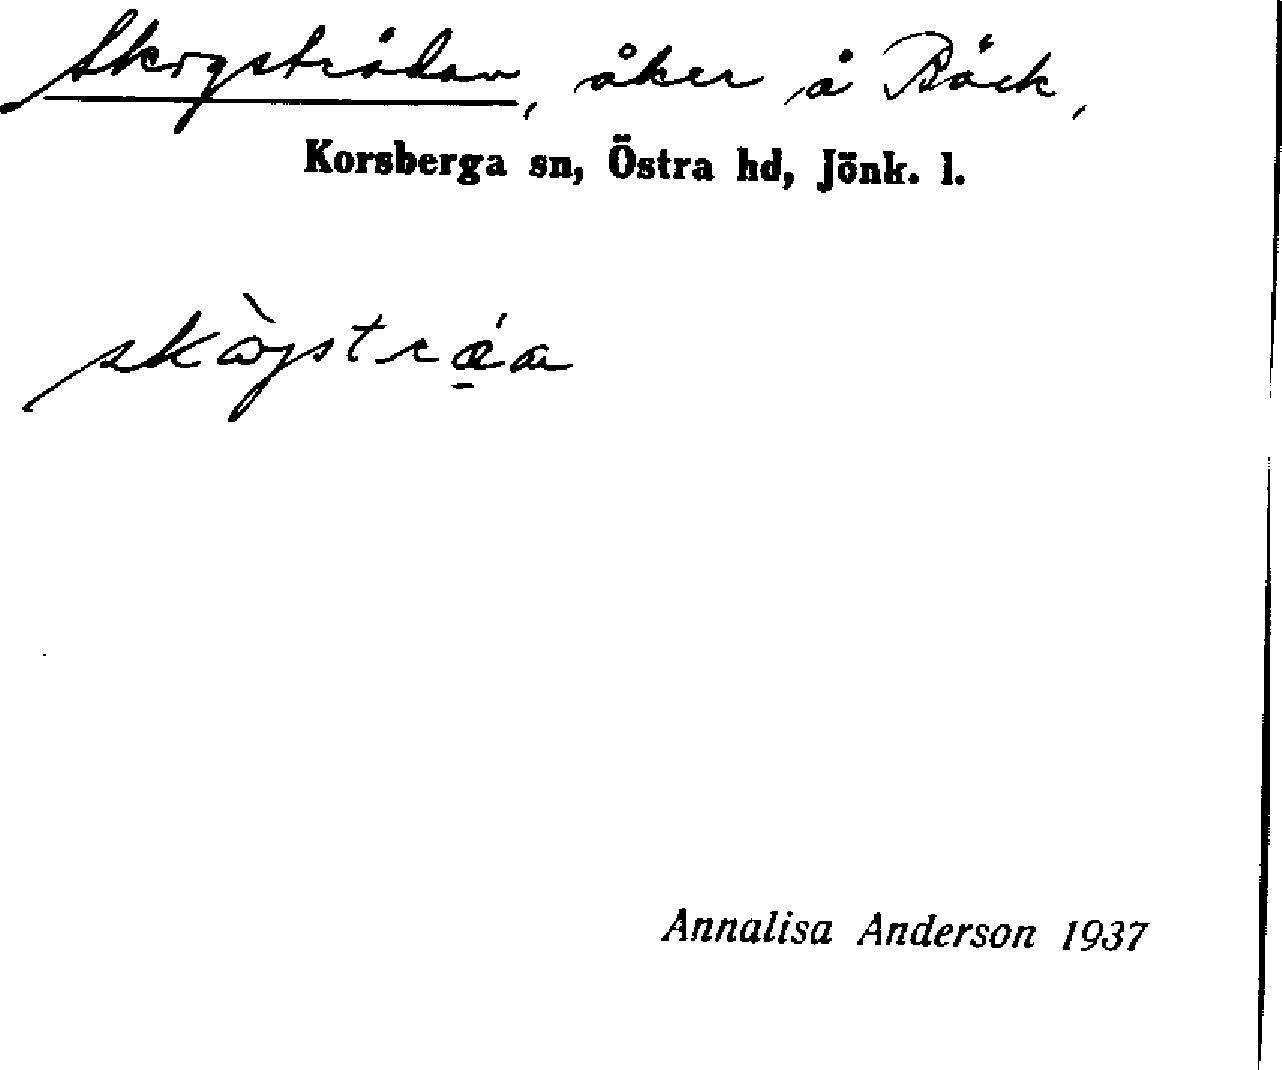 Skogsträdan, åker å Bäck,
Korsberga sn, Östra hd, Jönk. l.
Annalisa Anderson 1937